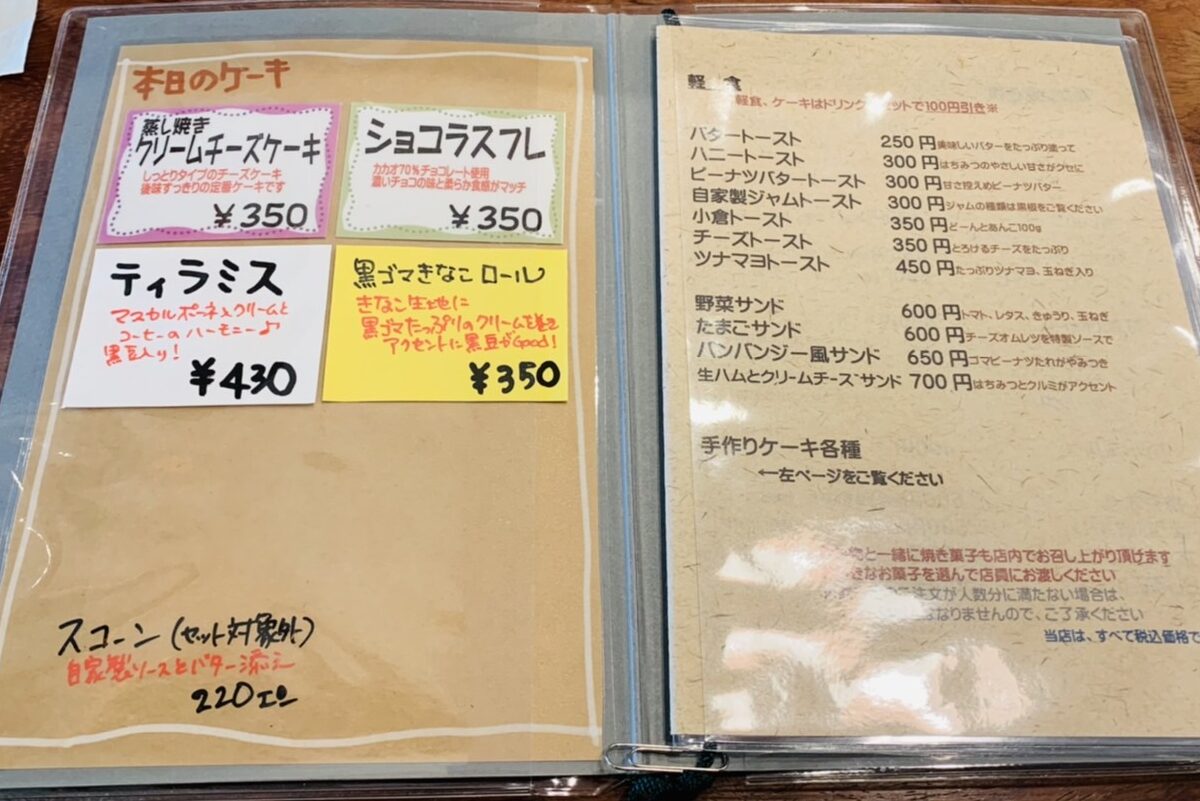 本日のケーキ
蒸し焼き
クリームチーズケーキ
しっとりタイプのチーズケーキ
後味すっきりの定番ケーキです
¥350
ショコラスフレ
カカオ70%チョコレート使用
濃いチョコの味と柔らか食感がマッチ
¥350
ティラミス
マスカルポーネクリームと
コーヒーのハーモニー♪
黒豆入り!
¥430
黒ゴマきなこロール
きなこ生地に
黒ゴマたっぷりのクリームを巻き
アクセントに黒豆がGood!
¥350
スコーン(セット対象外)
自家製ソースとバター添え
220エン
軽 食
軽食、ケーキはドリンク ットで100円引き※
バタートースト 250 円 美味しいバターをたっぷり塗って
ハニートースト 300 円 はちみつのやさしい甘さがクセに
ピーナツバタートースト 300 円 甘さ控えめピーナツバター
自家製ジャムトースト 300 円 ジャムの種類は黒板をご覧ください
小倉トースト 350 円 どーんとあんこ100g
チーズトースト 350 円 とろけるチーズをたっぷり
ツナマヨトースト 450 円 たっぷりツナマヨ、玉ねぎ入り
野菜サンド 600 円 トマト、レタス、きゅうり、玉ねぎ
たまごサンド 600 円 チーズオムレツを特製ソースで
バンバンジー風サンド 650 円 ゴマピーナツたれがやみつき
生ハムとクリームチーズサンド 700 円 はちみつとクルミがアクセント
手作りケーキ各種
←左ページをご覧ください
と一緒に焼き菓子も店内でお召し上がり頂けます
きなお菓子を選んで店員にお渡しください
注文が人数分に満たない場合は、
はなりませんので、ご了承ください
当店は、すべて税込価格で